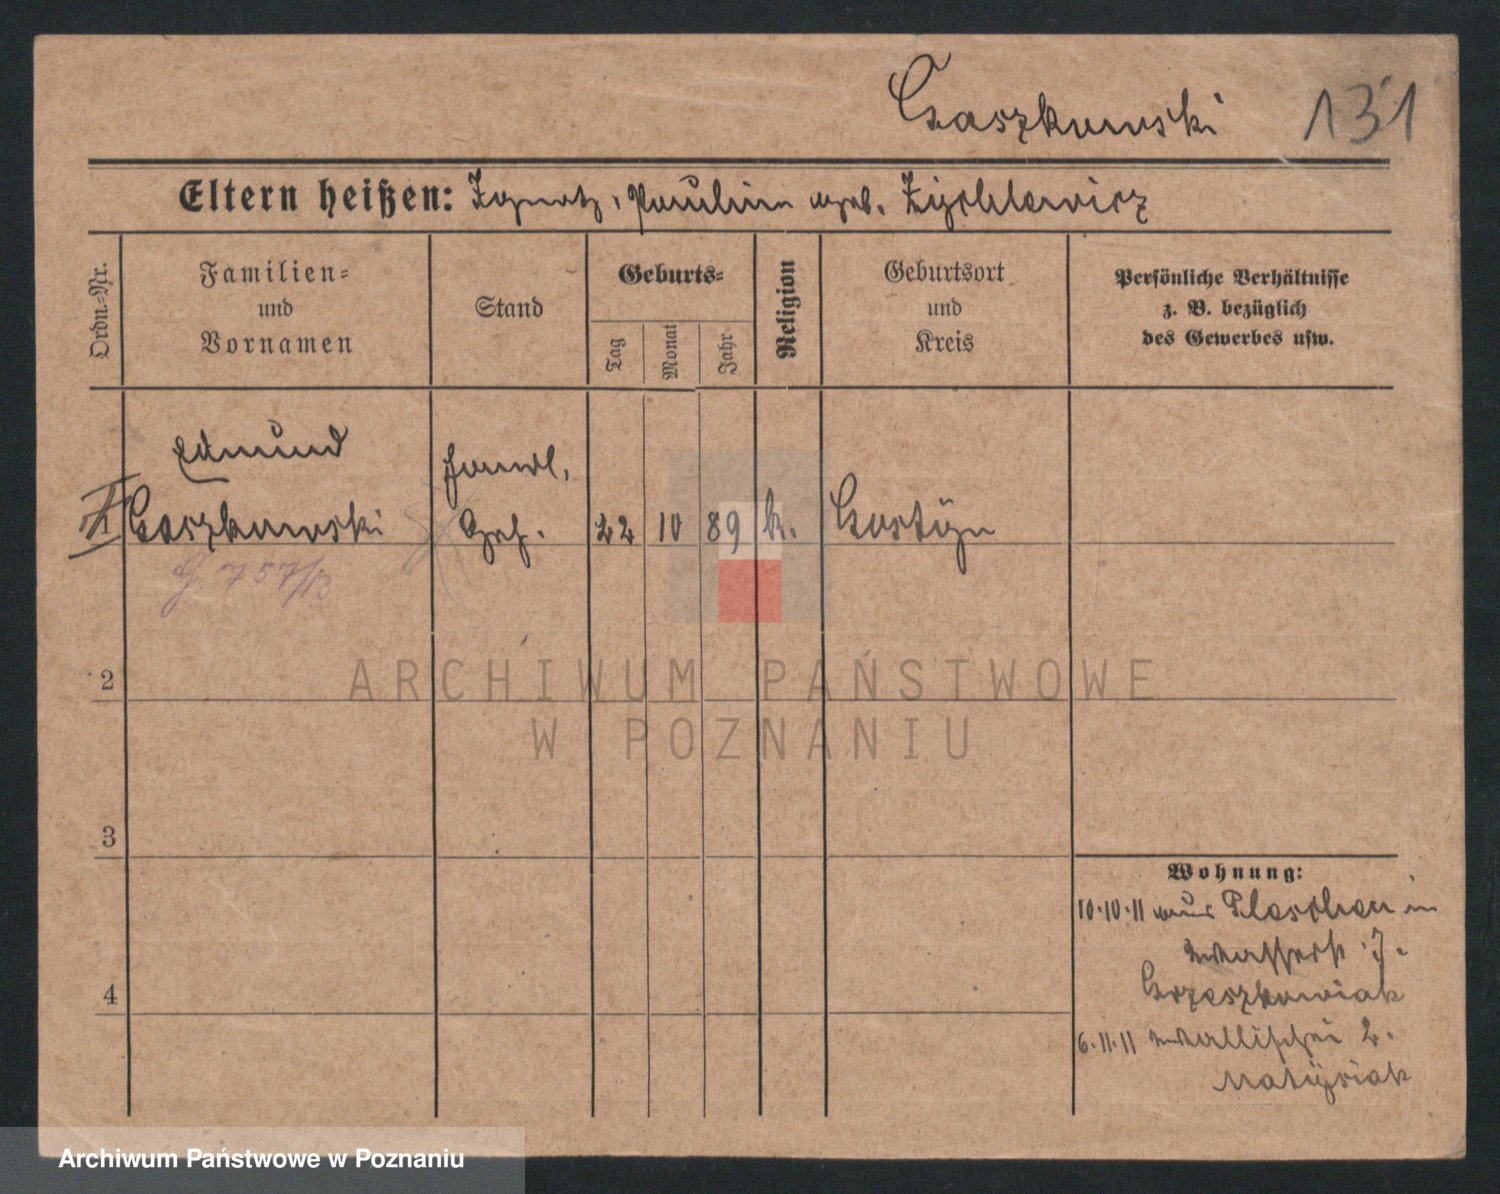 Gaszkowski 131
Eltern heißen: Ignatz, Pauline geb. Zychlewicz
Ordn.-Nr.
Familien-
und
Vornamen
Stand
Geburts-
Tag
Monat
Jahr
Religion
Geburtsort
und
Kreis
Persönliche Verhältnisse
z. B. bezüglich
des Gewerbes usw.
Edmund
Gaszkowski
Handl.
Geh.
22 10 89 k.
Gostyn
G 757/13
2
3
4
Wohnung:
10.10.11 aus Pleschen in
Wasserstr. 7.
Grzeszkowiak
6.11.11 Wallischei 2.
Matysiak
ARCHIWUM PAŃSTWOWE
W POZNANIU
Archiwum Państwowe w Poznaniu